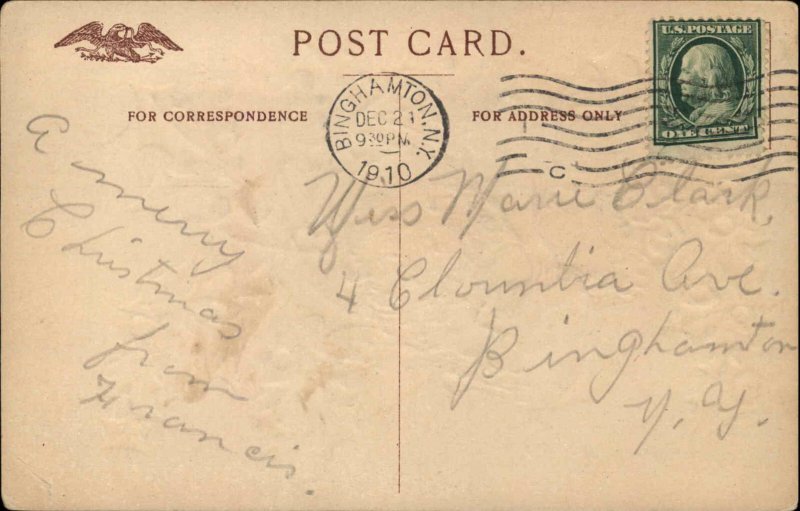 POST CARD.
FOR CORRESPONDENCE
FOR ADDRESS ONLY
BINGHAMTON, N.Y.
DEC 21
930 PM
1910
C
U.S. POSTAGE
ONE CENT
a merry
Christmas
from
Francis.
Miss Marie Clark,
4 Clountia Ave.
Binghamton
N.Y.